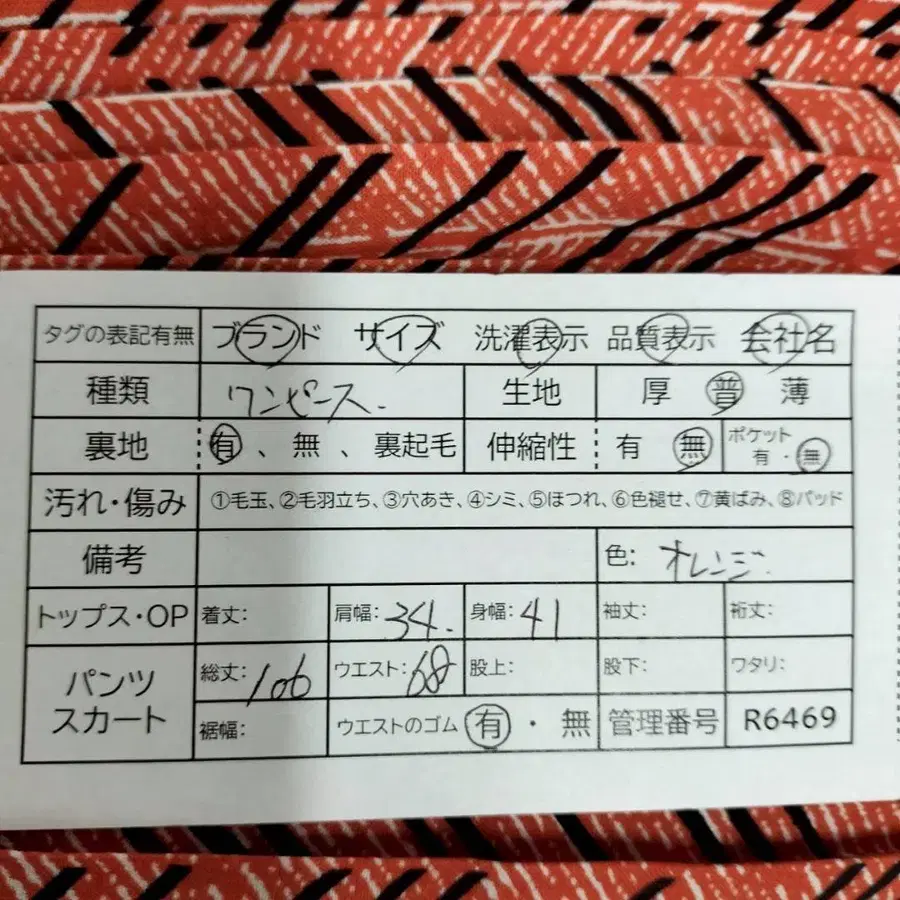 タグの表記有無 ブランド サイズ 洗濯表示 品質表示 会社名
種類 ワンピース. 生地 厚 普 薄
裏地 有、無、裏起毛 伸縮性 有 無 ポケット 有・無
汚れ・傷み ①毛玉、②毛羽立ち、③穴あき、④シミ、⑤ほつれ、⑥色褪せ、⑦黄ばみ、⑧パッド
備考 色: オレンジ.
トップス・OP 着丈: 肩幅: 34. 身幅: 41 袖丈: 裄丈:
パンツ スカート 総丈: 106 ウエスト: 68 股上: 股下: ワタリ:
裾幅: ウエストのゴム 有・無 管理番号 R6469